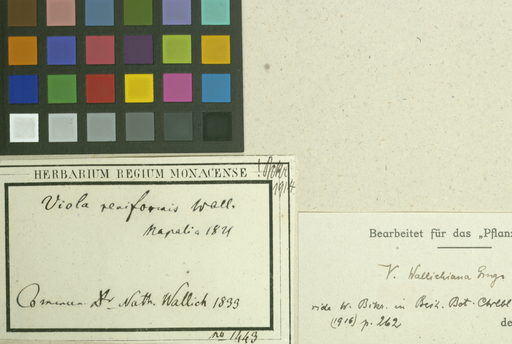 HERBARIUM REGIUM MONACENSE
! Becker
1914
Viola reniformis Wall.
Napalia 1821
Commun. Dr Nath. Wallich 1833
no 1443
Bearbeitet für das „Pflanz
V. Wallichiana Ging
vide W. Bckr. in Beih. Bot. Ctrlbl
(1916) p. 262
de